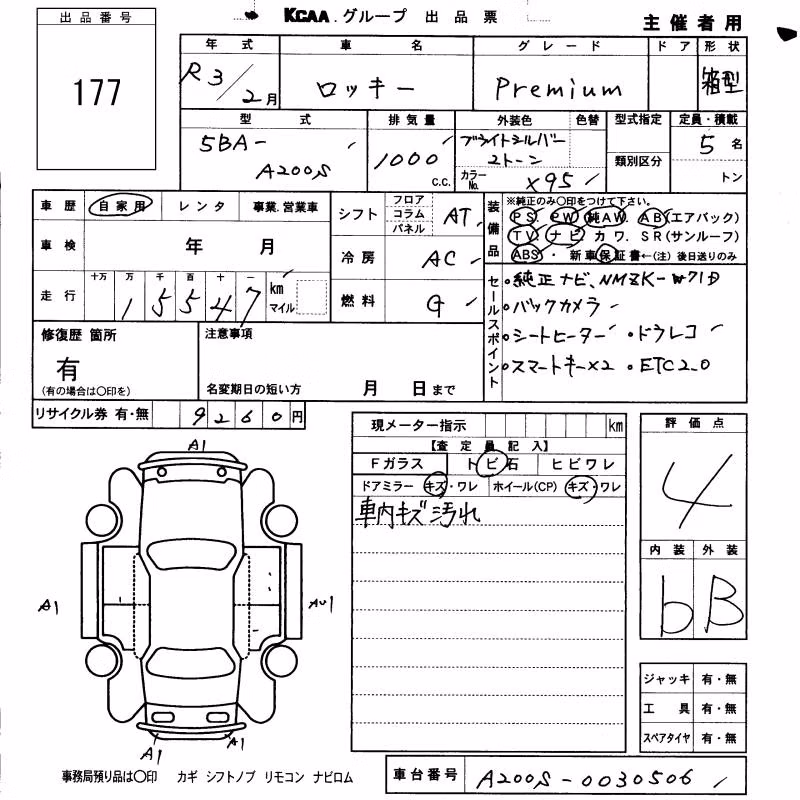 KCAA グループ 出品票
主催者用
出品番号
177
年式 車名 グレード ドア 形状
R3/2月 ロッキー Premium 箱型
型式 排気量 外装色 色替 型式指定 定員・積載
5BA-A200S 1000 c.c. ブライトシルバー 2トーン 5名
カラーNo. X95 類別区分 トン
車歴 自家用 レンタ 事業.営業車
車検 年 月
走行 十万 万 千 百 十 一 km マイル
1 5 5 4 7
シフト フロア コラム パネル AT
冷房 AC
燃料 G
装備品
※純正のみ〇印をつけて下さい。
PS. PW. 純AW. AB(エアバック)
TV. ナビ. カワ. SR(サンルーフ)
ABS ・ 新車保証書←(注) 後日送りのみ
セールスポイント
・純正ナビ、NMZK-W71D
・バックカメラ
・シートヒーター ・ドラレコ
・スマートキー×2 ・ETC2.0
修復歴 箇所
有
(有の場合は〇印を)
注意事項
名変期日の短い方 月 日まで
リサイクル券 有・無 9260円
現メーター指示 km
【査定員記入】
Fガラス トビ石 ヒビワレ
ドアミラー キズ・ワレ ホイール(CP) キズ・ワレ
車内キズ汚れ
評価点
4
内装 外装
b B
A1
A1
AU1
A1
A1
ジャッキ 有・無
工具 有・無
スペアタイヤ 有・無
事務局預り品は〇印 カギ シフトノブ リモコン ナビロム
車台番号 A200S-0030506